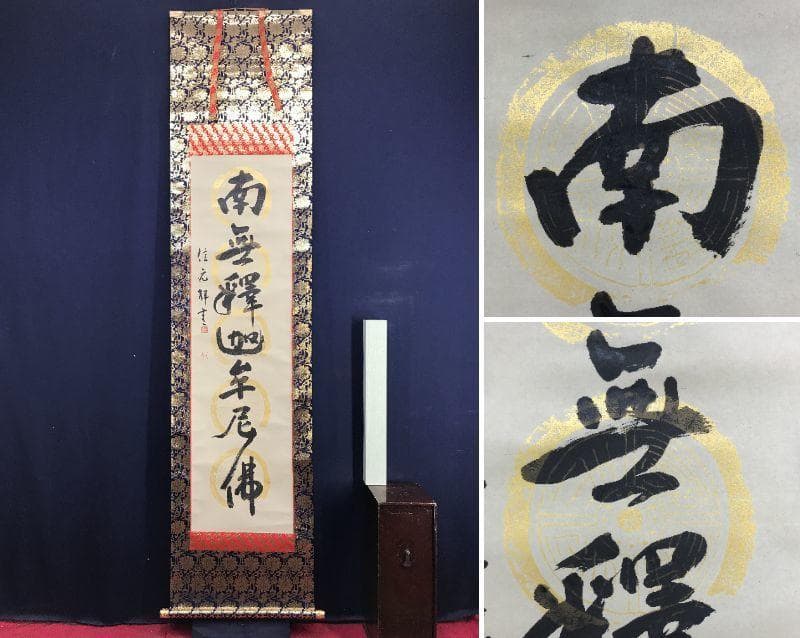 南無釋迦牟尼佛
南
無釋